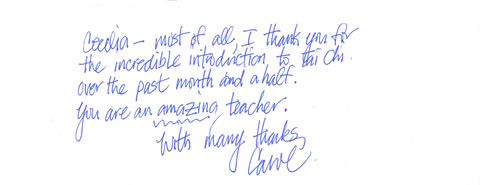 Cecilia – most of all, I thank you for
the incredible introduction to Tai Chi
over the past month and a half.
You are an amazing teacher.
With many thanks,
Carol